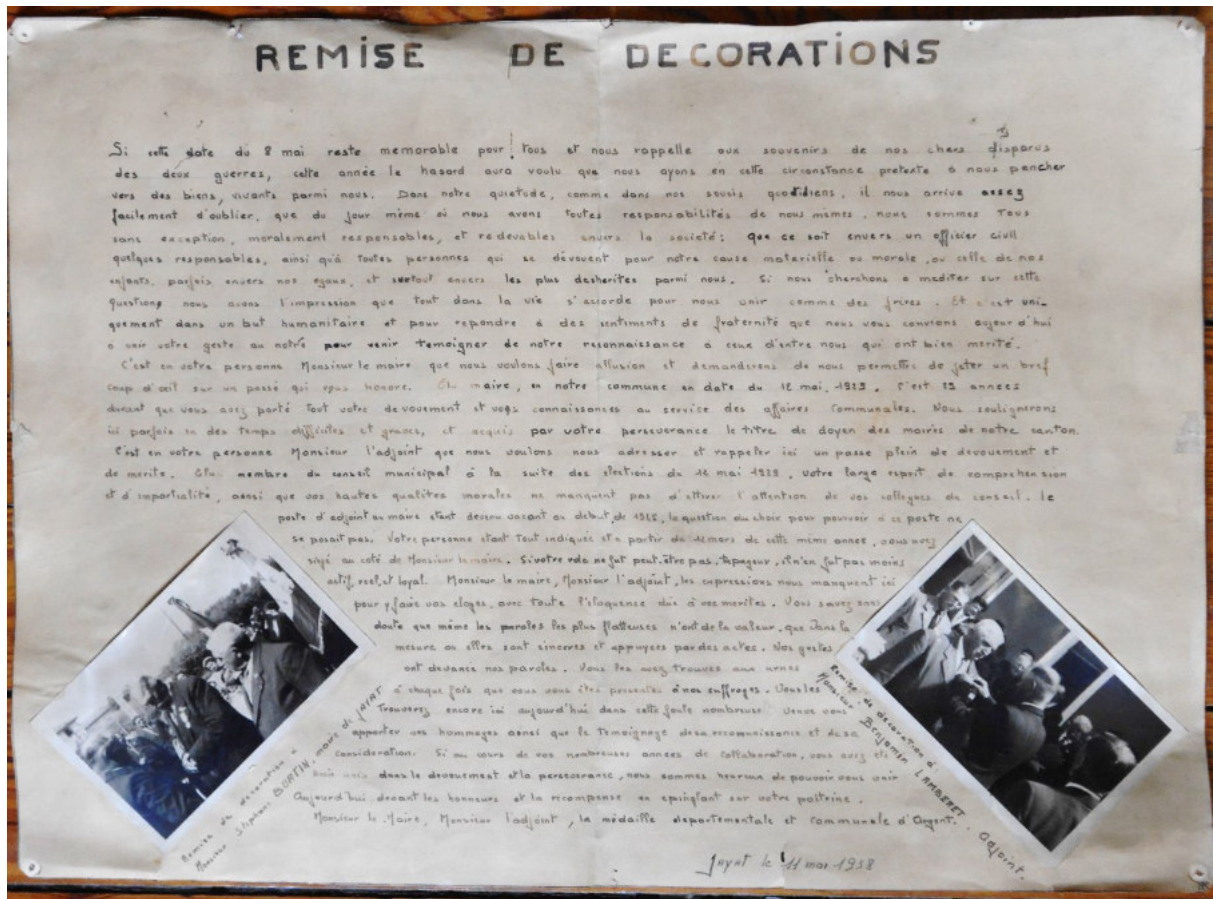 REMISE DE DECORATIONS
Si cette date du 8 mai reste memorable pour tous et nous rappelle aux souvenirs de nos chers disparus
des deux guerres, cette année le hasard aura voulu que nous ayons en cette circonstance pretexte à nous pencher
vers des biens, vivants parmi nous. Dans notre quietude, comme dans nos soucis quotidiens, il nous arrive assez
facilement d'oublier, que du jour même où nous avons toutes responsabilités de nous mêmes, nous sommes Tous
sans exception, moralement responsables, et redevables envers la societé: que ce soit envers un officier civil
quelques responsables, ainsi qu'à toutes personnes qui se dévouent pour notre cause materielle ou morale, ou celle de nos
enfants, parfois envers nos egaux, et surtout envers les plus desherites parmi nous. Si nous cherchons a mediter sur cette
question, nous avons l'impression que tout dans la vie s'accorde pour nous unir comme des frères. Et c'est uni-
quement dans un but humanitaire et pour repondre à des sentiments de fraternité que nous vous convions aujourd'hui
a unir votre geste au notre pour venir temoigner de notre reconnaissance à ceux d'entre nous qui ont bien merité.
C'est en votre personne Monsieur le maire que nous voulons faire allusion et demanderons de nous permettre de jeter un bref
coup d'œil sur un passé qui vous honore. Elu maire, en notre commune en date du 12 mai, 1929. C'est 29 années
durant que vous avez porté tout votre devouement et vos connaissances au service des affaires communales. Nous soulignerons
ici parfois en des temps difficiles et graves, et acquis par votre perseverance le titre de doyen des maires de notre canton.
C'est en votre personne Monsieur l'adjoint que nous voulons nous adresser et rappeler ici un passe plein de devouement et
de merite. Elu membre du conseil municipal à la suite des elections du 12 mai 1929, votre large esprit de comprehension
et d'impartialité, ainsi que vos hautes qualites morales ne manquent pas d'attirer l'attention de vos collegues du conseil. Le
poste d'adjoint au maire etant devenu vacant au debut de la question du choix pour pourvoir à ce poste ne
se posait pas. Votre personne etant tout indiquée et a partir du mars de cette même annee, vous avez
siégé au coté de Monsieur le maire. Si votre role ne fut peut-être pas tapageur, il n'en fut pas moins
actif, reel, et loyal. Monsieur le maire, Monsieur l'adjoint, les expressions nous manquent ici
pour y faire vos eloges, avec toute l'eloquence düe à vos merites. Vous savez sans
doute que même les paroles les plus flatteuses n'ont de la valeur, que dans la
mesure ou elles sont sinceres et appuyees par des actes. Nos gestes
ont devancé nos paroles. Vous les avez trouves aux urnes
à chaque fois que vous vous êtes presentés à nos suffrages. Vous les
Trouverez encore ici aujourd'hui dans cette foule nombreuse. Venue vous
apporter ses hommages ainsi que le temoignage de sa reconnaissance et de sa
consideration. Si au cours de vos nombreuses annees de collaboration, vous avez ete
unis dans le devouement et la perseverance, nous sommes heureux de pouvoir vous unir
Aujourd'hui devant les honneurs et la recompense en epinglant sur votre poitrine.
Monsieur le Maire, Monsieur l'adjoint, la médaille departementale et communale d'Argent.
Jayat le 11 mai 1958
Remise de decoration à
Monsieur Stéphane BERTIN, maire de JAYAT
Remise de decoration à
Monsieur Benjamin LAMBERET, Adjoint.